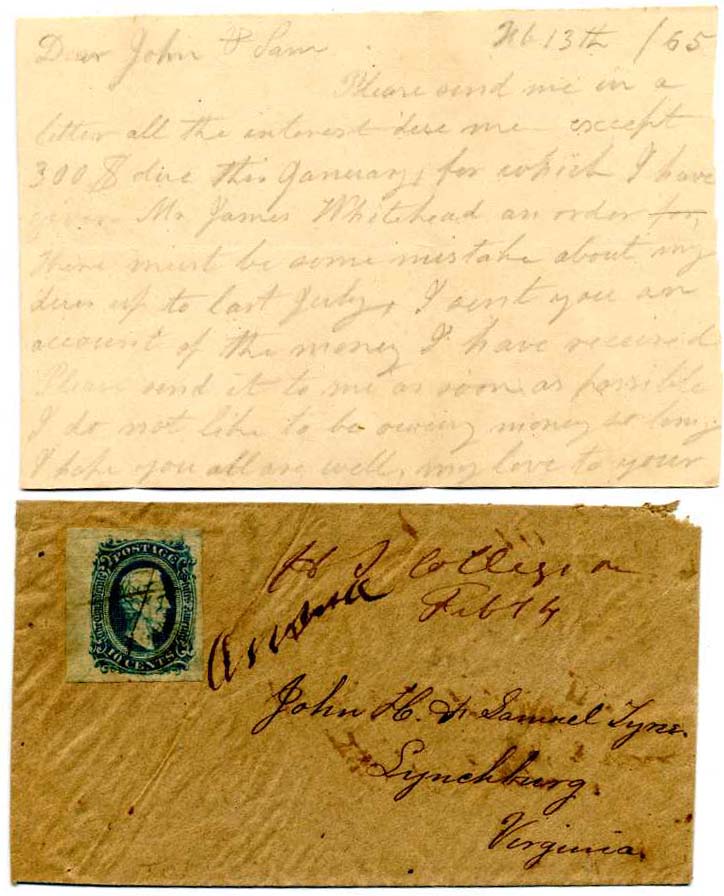 Dear John & Sam
Feb 13th /65
Please send me in a
letter all the interest due me except
300$ due this January, for which I have
given Mr James Whitehead an order for,
there must be some mistake about my
dues up to last July, I sent you an
account of the money I have received
Please send it to me as soon as possible
I do not like to be owing money so long
I hope you all are well, my love to your
POSTAGE
10 CENTS
H S College
Feb 14
John H. & Samuel Tyre
Lynchburg
Virginia